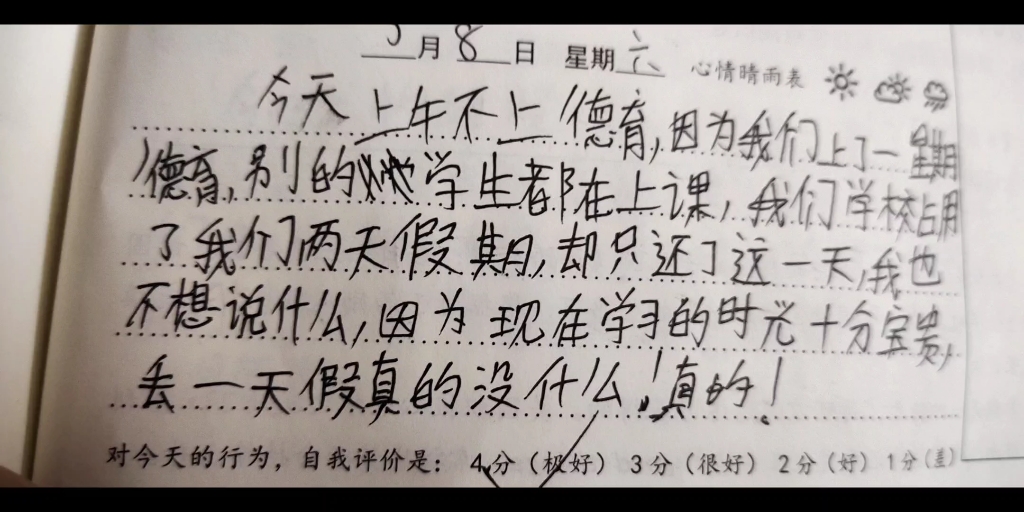 5月8日 星期六 心情晴雨表
今天上午不上德育,因为我们上了一星期
德育,别的学生都在上课,我们学校占用
了我们两天假期,却只还了这一天,我也
不想说什么,因为现在学习的时光十分宝贵,
丢一天假真的没什么!真的!
对今天的行为,自我评价是: 4分(极好) 3分(很好) 2分(好) 1分(差)